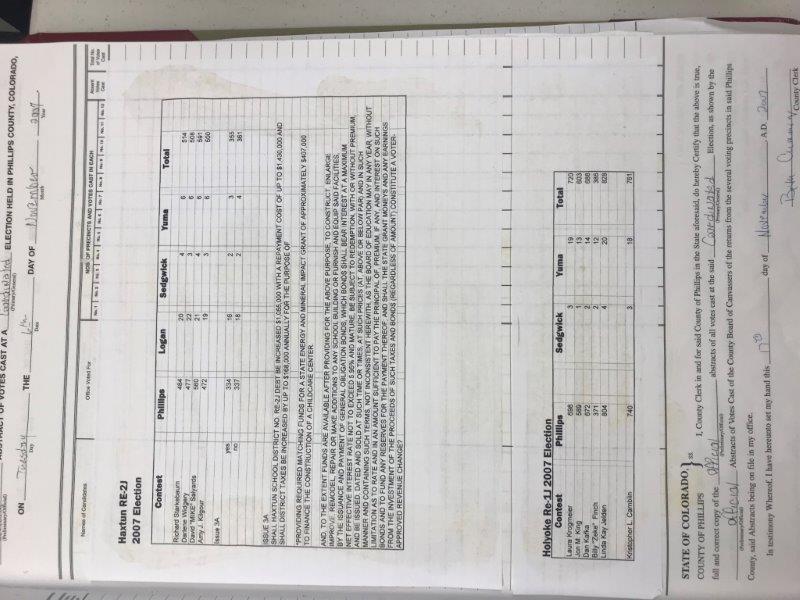 ABSTRACT OF VOTES CAST AT A Coordinated ELECTION HELD IN PHILLIPS COUNTY, COLORADO,
(Primary/General)
ON Tuesday THE 6th DAY OF November 2007
Day Date Month Year
Names of Candidates
Office Voted For
NOS OF PRECINCTS AND VOTES CAST IN EACH
No. 1 No. 2 No. 3 No. 4 No. 5 No. 6 No. 7 No. 8 No. 9 No. 10 No. 11 No. 12
Absent Votes Cast
Total No. of Votes Cast
Haxtun RE-2J
2007 Election
Contest Phillips Logan Sedgwick Yuma Total
Richard Starkebaum 484 20 4 6 514
Darlene Vickery 477 22 3 6 508
David "MIKE" Salyards 560 21 4 6 591
Amy J. Kilgour 472 19 3 6 500
Issue 3A
yes 334 16 2 3 355
no 337 18 2 4 361
ISSUE 3A
SHALL HAXTUN SCHOOL DISTRICT NO. RE-2J DEBT BE INCREASED $1,055,000 WITH A REPAYMENT COST OF UP TO $1,430,000 AND
SHALL DISTRICT TAXES BE INCREASED BY UP TO $168,000 ANNUALLY FOR THE PURPOSE OF
*PROVIDING REQUIRED MATCHING FUNDS FOR A STATE ENERGY AND MINERAL IMPACT GRANT OF APPROXIMATELY $407,000
TO FINANCE THE CONSTRUCTION OF A CHILDCARE CENTER
AND, TO THE EXTENT FUNDS ARE AVAILABLE AFTER PROVIDING FOR THE ABOVE PURPOSE, TO CONSTRUCT, ENLARGE
IMPROVE, REMODEL, REPAIR OR MAKE ADDITIONS TO ANY SCHOOL BUILDING OR FURNISH AND EQUIP SAID FACILITIES,
BY THE ISSUANCE AND PAYMENT OF GENERAL OBLIGATION BONDS, WHICH BONDS SHALL BEAR INTEREST AT A MAXIMUM
NET EFFECTIVE INTEREST RATE NOT TO EXCEED 5.95% AND MATURE, BE SUBJECT TO REDEMPTION, WITH OR WITHOUT PREMIUM,
AND BE ISSUED, DATED AND SOLD AT SUCH TIME OR TIMES, AT SUCH PRICES (AT, ABOVE OR BELOW PAR) AND IN SUCH
MANNER AND CONTAINING SUCH TERMS, NOT INCONSISTENT HEREWITH, AS THE BOARD OF EDUCATION MAY IN ANY YEAR, WITHOUT
LIMITATION AS TO RATE AND IN AN AMOUNT SUFFICIENT TO PAY THE PRINCIPAL OF, PREMIUM, IF ANY, AND INTEREST ON SUCH
BONDS AND TO FUND ANY RESERVES FOR THE PAYMENT THEREOF, AND SHALL THE STATE GRANT MONEYS AND ANY EARNINGS
FROM THE INVESTMENT OF THE PROCEEDS OF SUCH TAXES AND BONDS (REGARDLESS OF AMOUNT) CONSTITUTE A VOTER-
APPROVED REVENUE CHANGE?
Holyoke Re-1J 2007 Election
Contest Phillips Sedgwick Yuma Total
Laura Krogmeier 698 3 19 720
Jon M. King 589 1 13 603
Dan Kafka 672 2 14 688
Billy "Zeke" Finch 371 2 12 385
Linda Kay Jelden 804 4 20 828
Kristopher L. Camblin 740 3 18 761
STATE OF COLORADO
COUNTY OF PHILLIPS } ss. I, County Clerk in and for said County of Phillips in the State aforesaid, do hereby Certify that the above is true,
full and correct copy of the official abstracts of all votes cast at the said Coordinated Election, as shown by the
(Preliminary/Official) (Primary/General)
official Abstracts of Votes Cast of the County Board of Canvassers of the returns from the several voting precincts in said Phillips
(Preliminary/Official)
County, said Abstracts being on file in my office.
In testimony Whereof, I have hereunto set my hand this day of November A.D. 2007
Beth
County Clerk